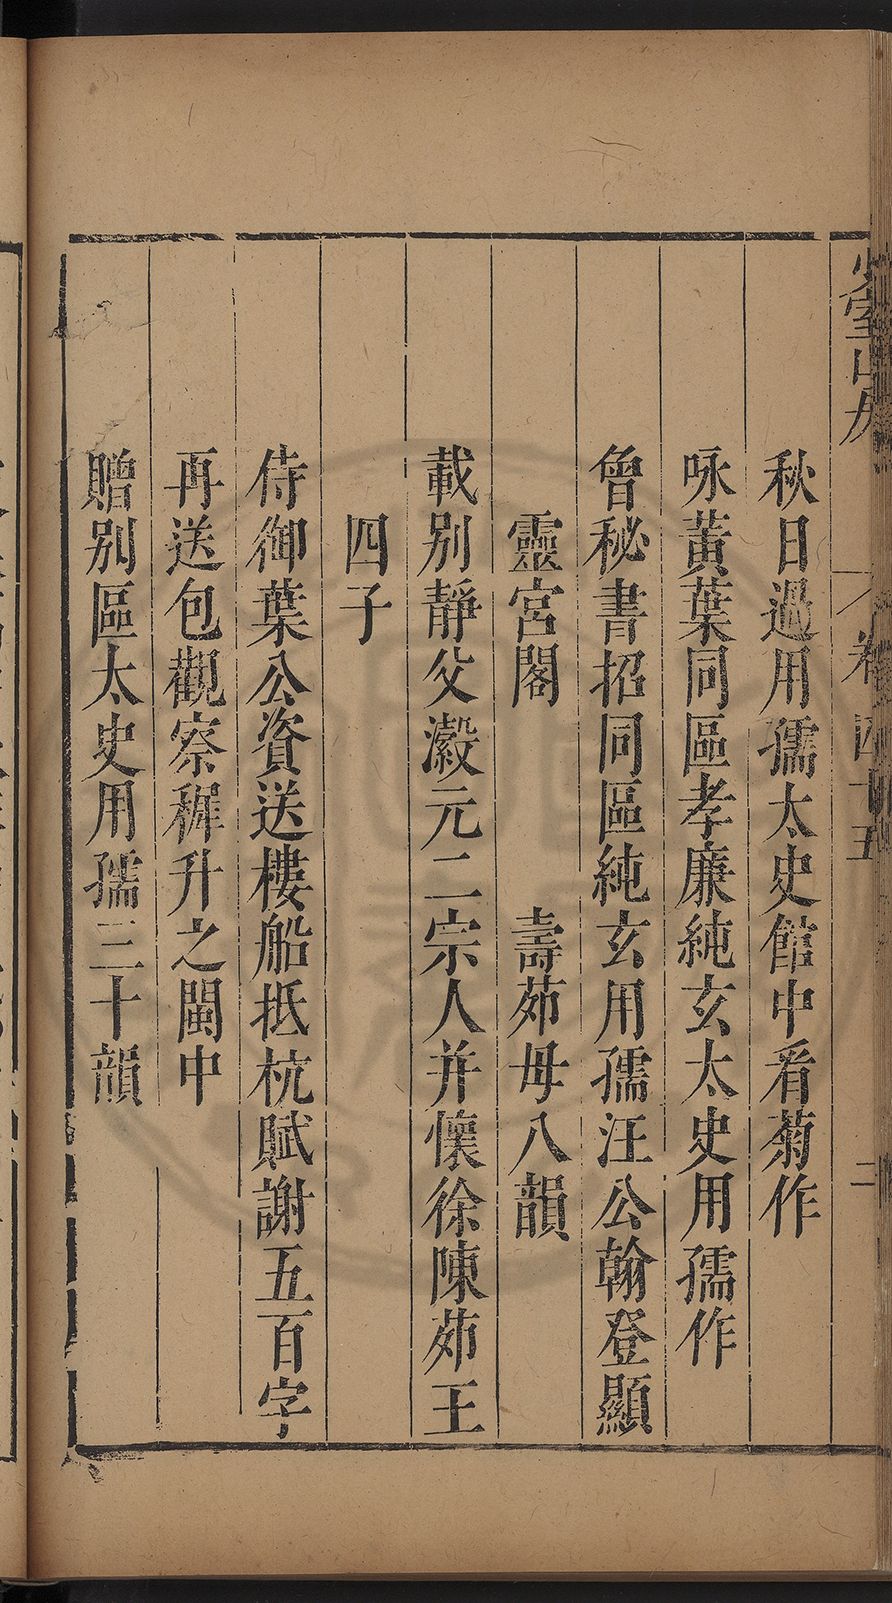 少室山房
卷四十五
二
秋日過用孺太史館中看菊作
咏黃葉同區孝廉純玄太史用孺作
曾秘書招同區純玄用孺汪公翰登顯
靈宮閣　　　壽茆母八韻
載別靜父瀫元二宗人并懷徐陳茆王
四子
侍御葉公資送樓船抵杭賦謝五百字
再送包觀察穉升之閩中
贈別區太史用孺三十韻